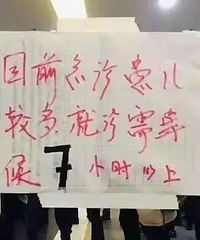 因前急诊患儿
较多就诊需等
候7小时以上